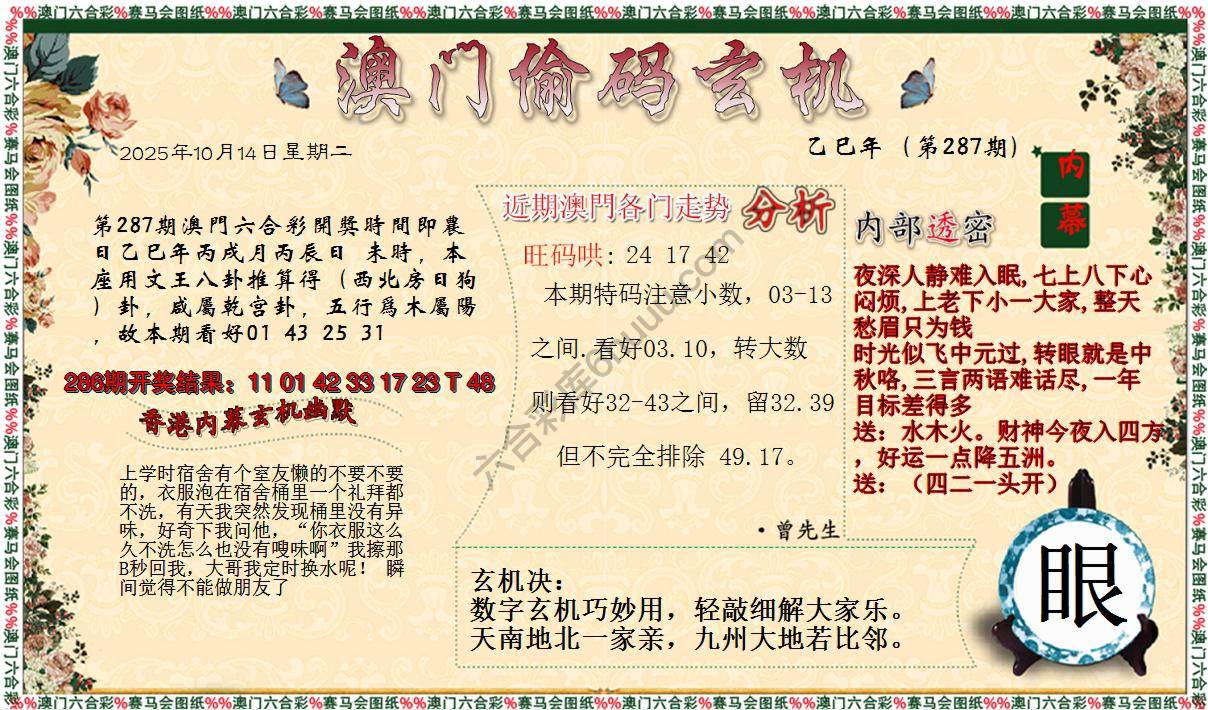 %%澳门六合彩%赛马会图纸%%澳门六合彩%赛马会图纸%%澳门六合彩%赛马会图纸%%澳门六合彩%赛马会图纸%%澳门六合彩%赛马会图纸%%澳门六合彩%赛马会图纸%%
澳门偷码玄机
2025年10月14日星期二
乙巳年（第287期）
内
幕
第287期澳門六合彩開獎時間即農
日乙巳年丙戌月丙辰日 未時，本
座用文王八卦推算得（西北房日狗
）卦，咸屬乾宫卦，五行爲木屬陽
，故本期看好01 43 25 31
286期开奖结果：11 01 42 33 17 23 T 48
香港内幕玄机幽默
上学时宿舍有个室友懒的不要不要
的，衣服泡在宿舍桶里一个礼拜都
不洗，有天我突然发现桶里没有异
味，好奇下我问他，“你衣服这么
久不洗怎么也没有嗖味啊”我擦那
B秒回我，大哥我定时换水呢！ 瞬
间觉得不能做朋友了
近期澳門各门走势 分析
旺码哄: 24 17 42
本期特码注意小数，03-13
之间.看好03.10，转大数
则看好32-43之间，留32.39
但不完全排除 49.17。
·曾先生
内部透密
夜深人静难入眠,七上八下心
闷烦,上老下小一大家,整天
愁眉只为钱
时光似飞中元过,转眼就是中
秋咯,三言两语难话尽,一年
目标差得多
送：水木火。财神今夜入四方
，好运一点降五洲。
送：（四二一头开）
玄机决：
数字玄机巧妙用，轻敲细解大家乐。
天南地北一家亲，九州大地若比邻。
眼
%%澳门六合彩%赛马会图纸%%澳门六合彩%赛马会图纸%%澳门六合彩%赛马会图纸%%澳门六合彩%赛马会图纸%%澳门六合彩%赛马会图纸%%澳门六合彩%赛马会图纸%%